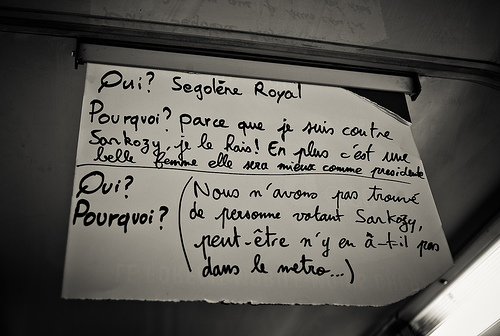 Qui? Segolène Royal
Pourquoi? parce que je suis contre
Sarkozy, je le hais! En plus c'est une
belle femme elle sera mieux comme presidente
Qui?
Pourquoi?
(Nous n'avons pas trouvé
de personne votant Sarkozy,
peut-être n'y en a-t-il pas
dans le metro...)